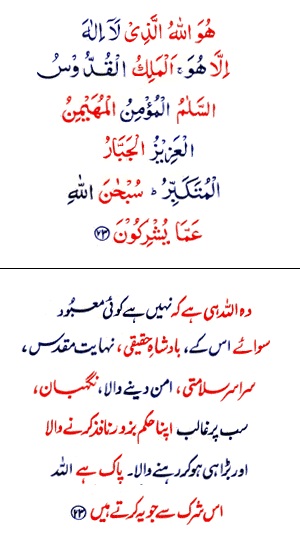 هُوَ اللّٰهُ الَّذِیْ لَاۤ اِلٰهَ
اِلَّا هُوَ ۚ اَلْمَلِكُ الْقُدُّوْسُ
السَّلٰمُ الْمُؤْمِنُ الْمُهَیْمِنُ
الْعَزِیْزُ الْجَبَّارُ
الْمُتَكَبِّرُ ؕ سُبْحٰنَ اللّٰهِ
عَمَّا یُشْرِكُوْنَ ﴿۲۳﴾
وہ اللہ ہی ہے کہ نہیں ہے کوئی معبُود
سوائے اس کے، بادشاہِ حقیقی، نہایت مقدس،
سراسر سلامتی، امن دینے والا، نگہبان،
سب پر غالب اپنا حکم بزور نافذ کرنے والا
اور بڑا ہی ہو کر رہنے والا۔ پاک ہے اللہ
اس شرک سے جو یہ کرتے ہیں ﴿۲۳﴾